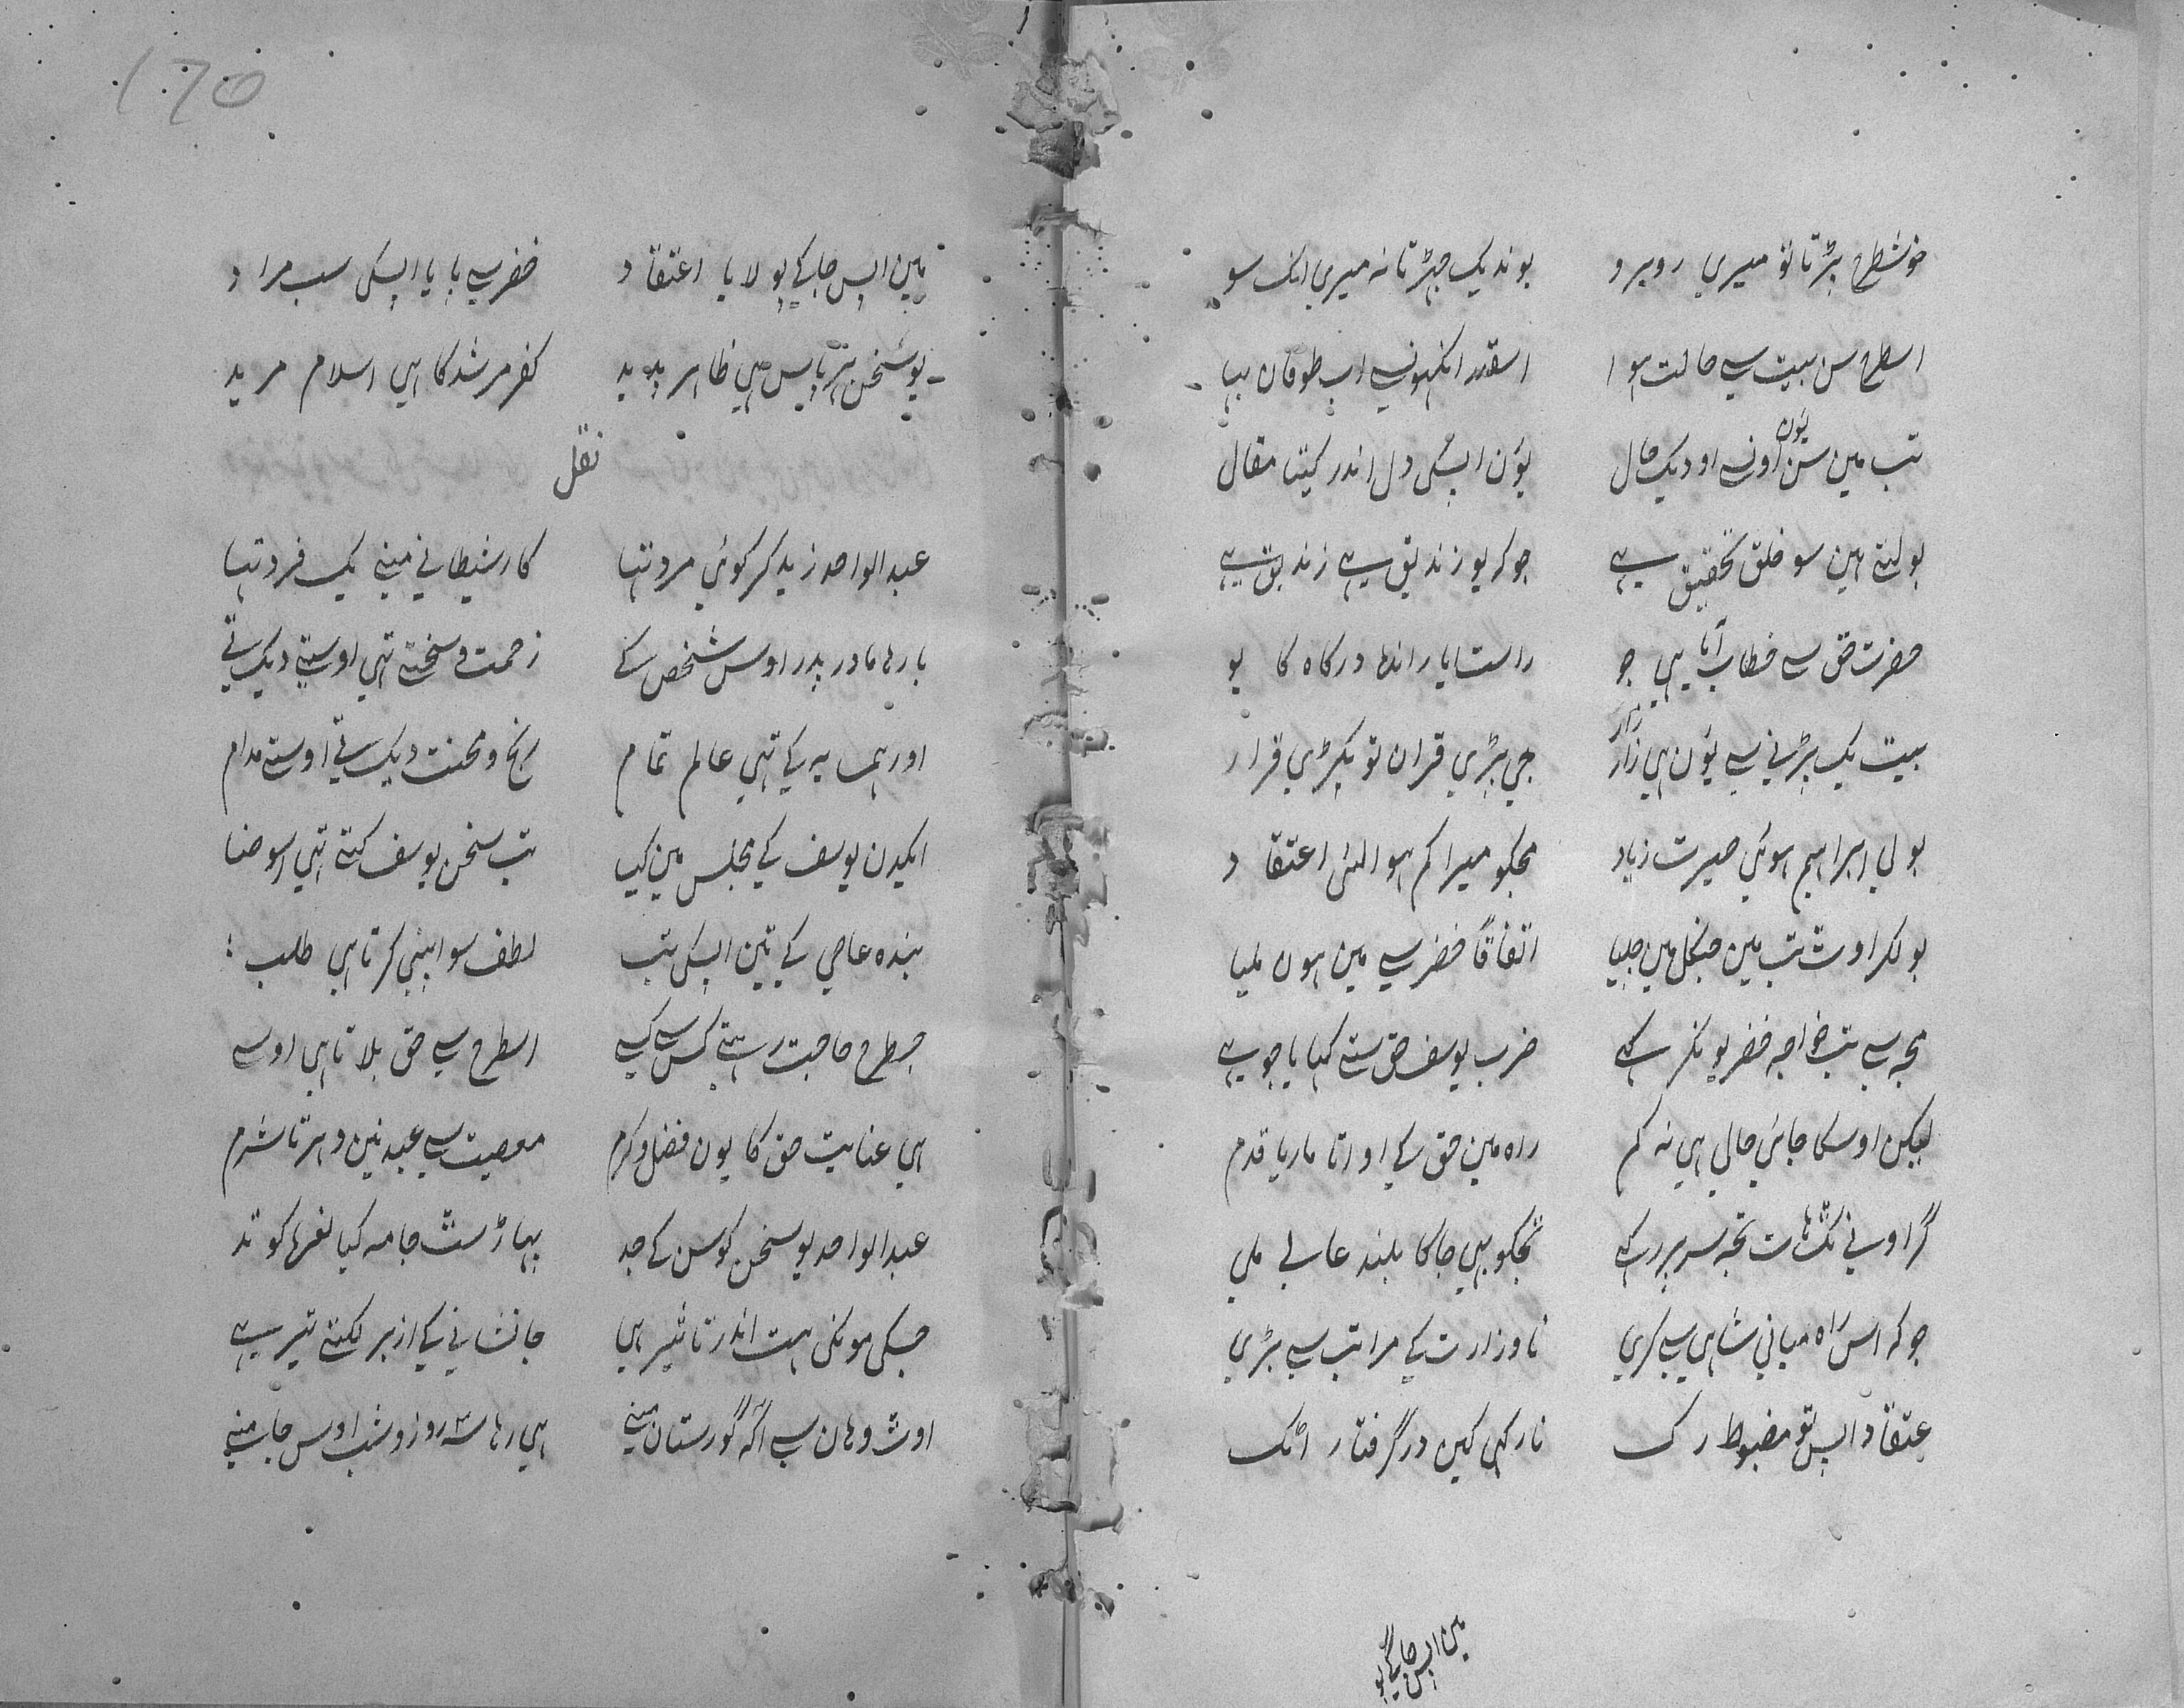 خوشطرح پڑتا تو میری روبرو بوند یک جھڑتا نہ میری انک سو
اسطرح سن بیت سے حالت ہوا اسقدر انکہونسے اب طوفان بہا
تب مین سن یون اونسے او دیک حال یون اپسکی دل اندر کیتا مقال
بولتے ہین سو خلق تحقیق ہے جو کر یو زندیق ہے زندیق ہے
حضرت حق سے خطاب آتا ہی جو راست یا راندہا درکاہ کا یو
بیت یک پڑنے سے یون ہی زار زار جی پڑی قران تو پکڑی قرار
بولی ابراہیم ہوئی حیرت زیاد مجکو میرا کم ہوا لئی اعتقاد
بولکر اوٹ تب مین جنکل مین چلیا اتفاقًا خضر سے مین ہون ملیا
مجہ سے تب خواجہ خضر یو نکر کہے ضرب یوسف حق ستے کہایا جو ہے
لیکن اوسکا جائی جالی ہی نہ کم راہ مین حق کے او اتا ماریا قدم
گر اوسنے نک ہات تجہ سر پر رکہے تجکو بہی جاکا بلند عالی ملی
جو کہ اس راہ میانی شاہی سے کری نا وزارت کے مراتب سے بڑی
عتقاد اپس تو مضبوط رک نا رکہی کین در گرفتار اٹک
مین اپس جاکے یو
مین اپس جاکے یو لایا اعتقاد خضر سے پایا اپسکی سب مراد
یو سخن ہر یاپس ہی ظاہر پدید کفر مرشد کا ہی اسلام مرید
نقل
عبدالواحد زید کر کوئی مرد تہا کار شیطانی منے یک فرد تہا
بارہا مادر پدر اوس شخص کے زحمت و سختے تہی اوستے دیک تے
اور ہمسایہ کے تہی عالم تمام رنج و محنت دیکتے اوستے مدام
ایکدن یوسف کے مجلس مین کیا تب سخن یوسف کتے تہی اسوضا
بندہ عاصی کے تین اپسکی تب لطف سو اپنی کرتا ہی طلب
جسطرح حاجت رہتے کس سے کسے اسطرح سے حق بلاتا ہی اوسے
ہی عنایت حق کا یون فضل و کرم معصیت سے عبد نین دہرتا شرم
عبدالواحد یو سخن کو سن کے جد پہاڑ سٹ جامہ کیا نعرہا کو تد
جسکی مونکی بہت اندر تاثیر ہی جانفشانی کے از بر لکتے تیر ہے
اوٹ وہان سے آکہ گورستان منے ہی رہا سہ روز و شب اوس جا منے